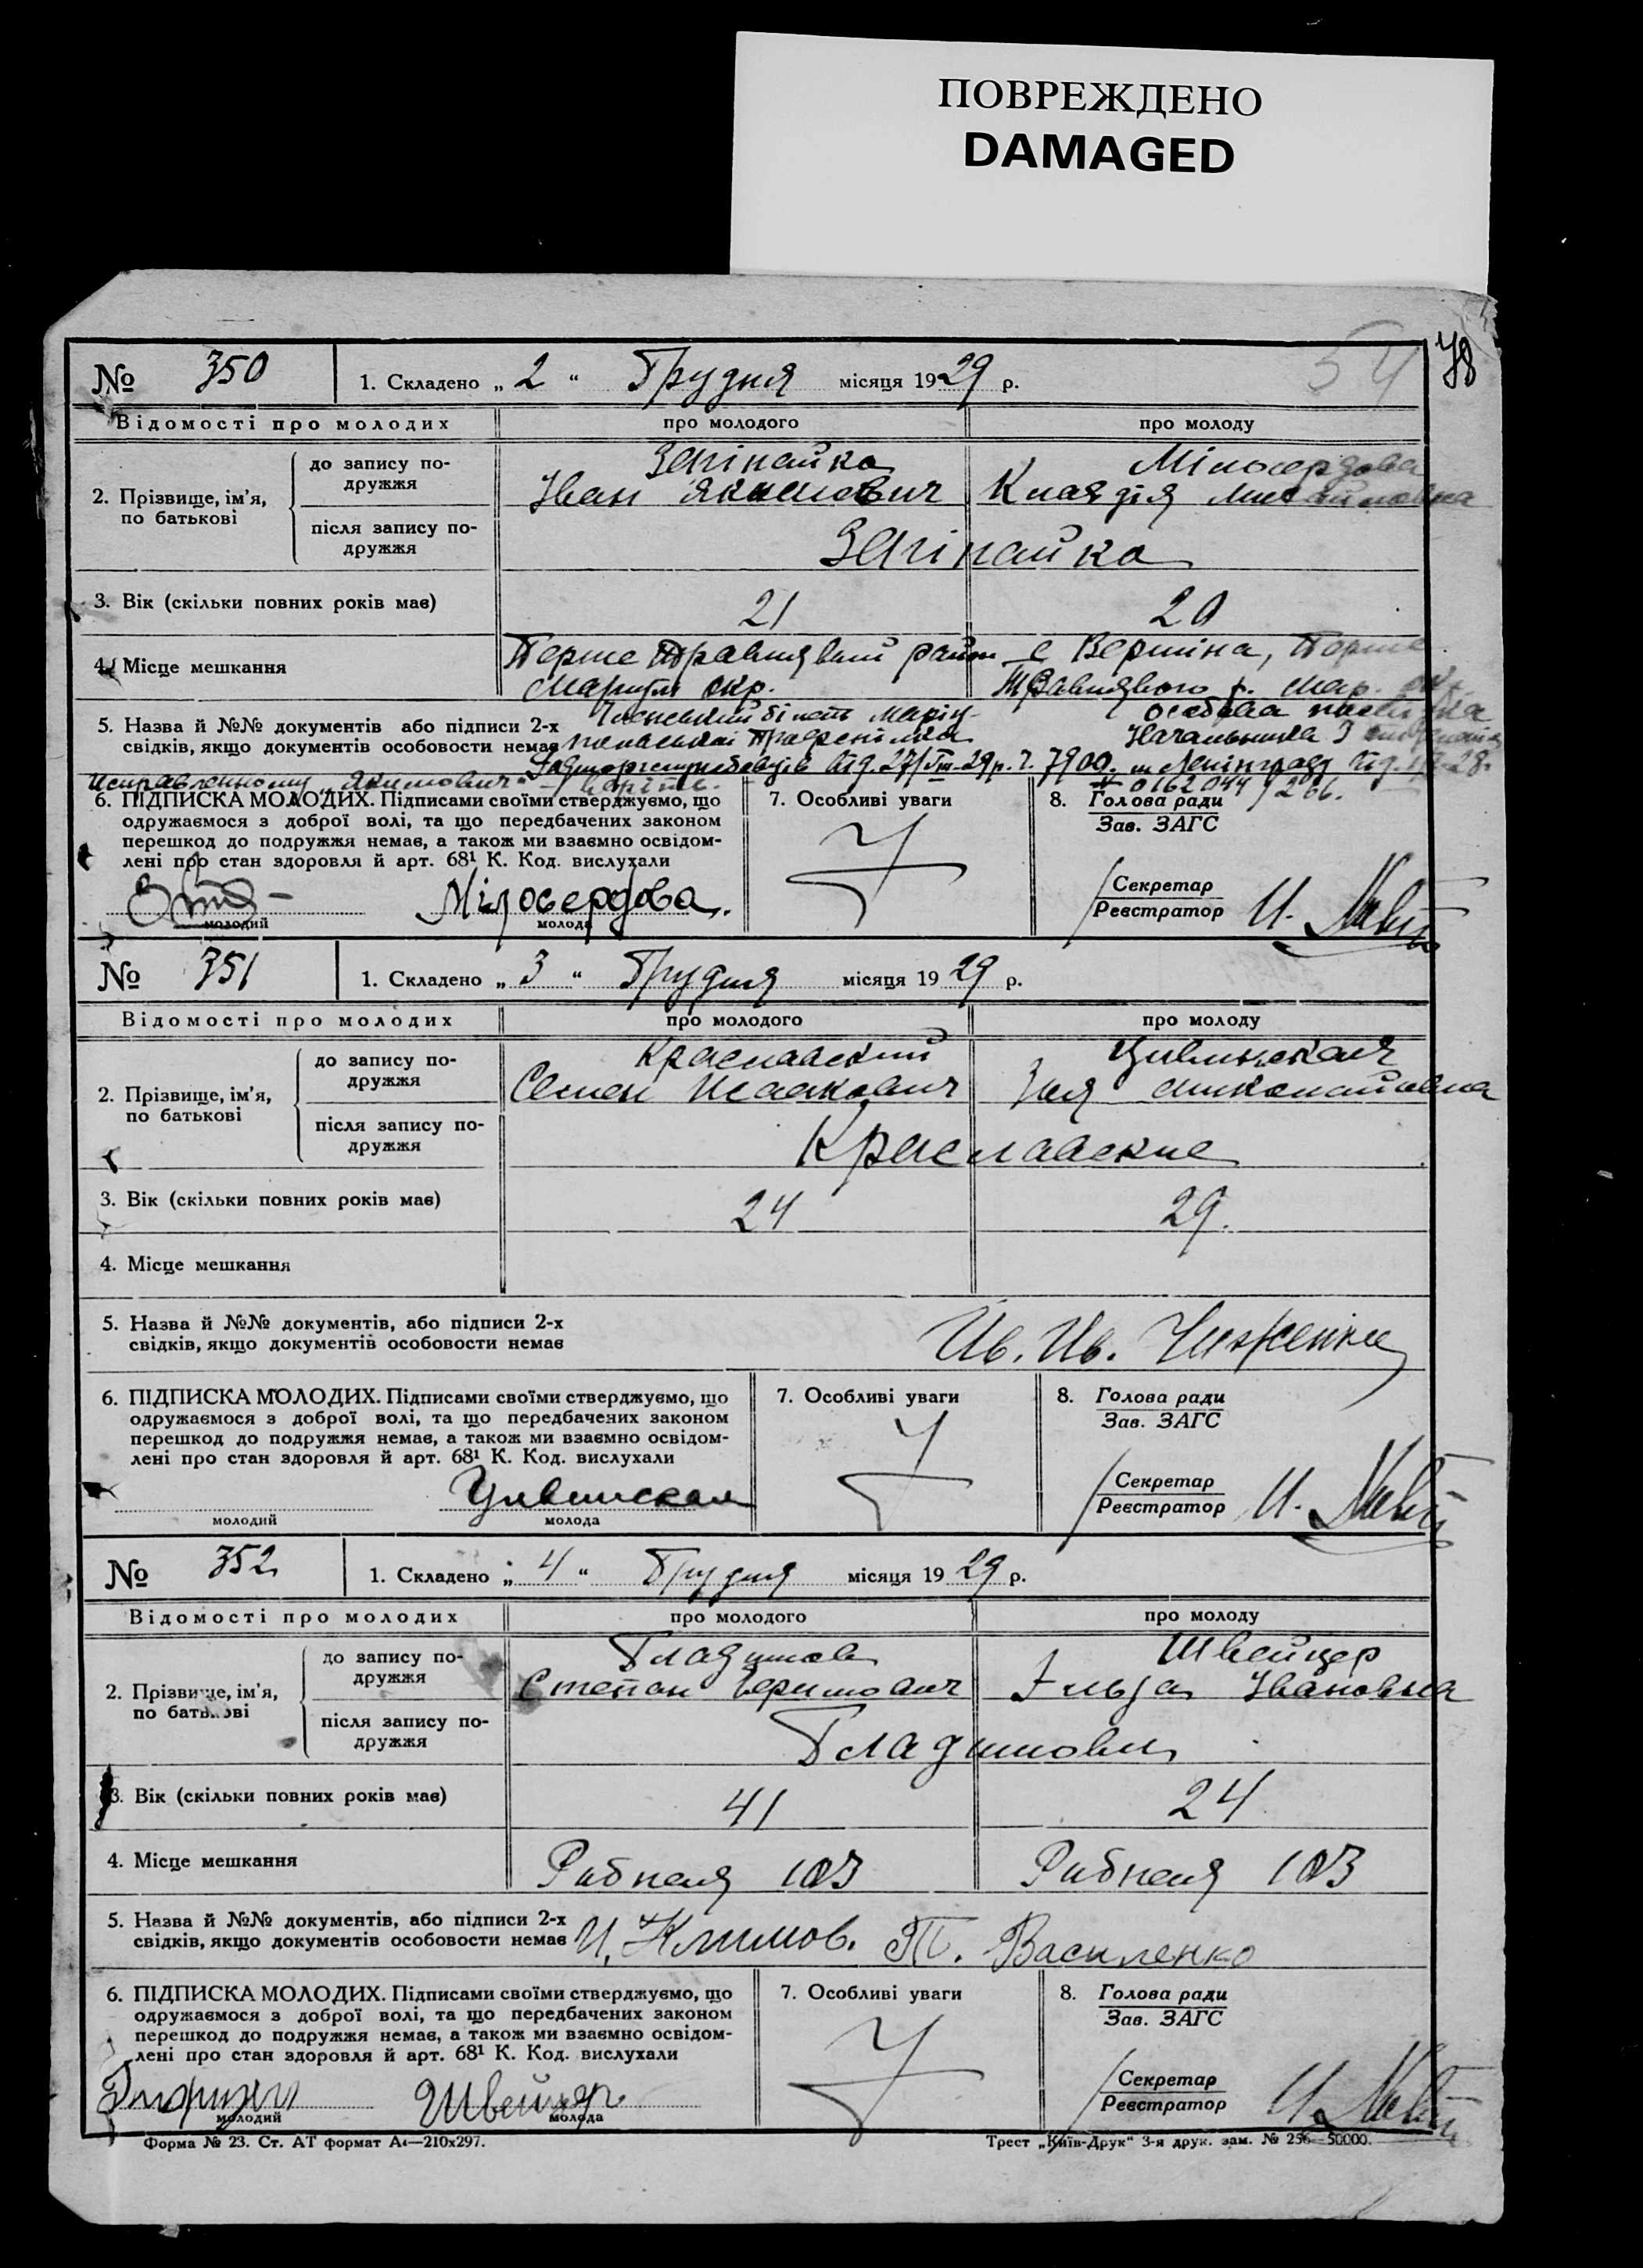 ПОВРЕЖДЕНО
DAMAGED
54 78
№ 350 1. Складено „ 2 “ Грудня місяця 1929 р.
Відомості про молодих про молодого про молоду
2. Прізвище, ім’я, по батькові
до запису подружжя
Іван Якимович Клавдія
після запису подружжя
3. Вік (скільки повних років має) 21 20
4. Місце мешкання
Мар. окр.
5. Назва й №№ документів або підписи 2-х
свідків, якщо документів особовости немає
Исправленному „Якимович“
6. ПІДПИСКА МОЛОДИХ. Підписами своїми стверджуємо, що
одружаємося з доброї волі, та що передбачених законом
перешкод до подружжя немає, а також ми взаємно освідом-
лені про стан здоровля й арт. 68¹ К. Код. вислухали
Мілосердова.
молодий молода
7. Особливі уваги
8. Голова ради
Зав. ЗАГС
Секретар
Реєстратор
№ 351 1. Складено „ 3 “ Грудня місяця 1929 р.
Відомості про молодих про молодого про молоду
2. Прізвище, ім’я,
по батькові
до запису по-
дружжя
Краславский Цивинская
Семен Исаакович Зоя Николайовна
після запису по-
дружжя
Краславские
3. Вік (скільки повних років має) 24 29.
4. Місце мешкання
5. Назва й №№ документів, або підписи 2-х
свідків, якщо документів особовости немає
Ив. Ив.
6. ПІДПИСКА МОЛОДИХ. Підписами своїми стверджуємо, що
одружаємося з доброї волі, та що передбачених законом
перешкод до подружжя немає, а також ми взаємно освідом-
лені про стан здоровля й арт. 68¹ К. Код. вислухали
Цивинская
молодий молода
7. Особливі уваги
8. Голова ради
Зав. ЗАГС
Секретар
Реєстратор
№ 352 1. Складено „ 4 “ Грудня місяця 1929 р.
Відомості про молодих про молодого про молоду
2. Прізвище, ім’я,
по батькові
до запису по-
дружжя
Швейцер
Степан Ельза Івановна
після запису по-
дружжя
3. Вік (скільки повних років має) 41 24
4. Місце мешкання
Рибная 103 Рибная 103
5. Назва й №№ документів, або підписи 2-х
свідків, якщо документів особовости немає
И. Климов. Т. Василенко
6. ПІДПИСКА МОЛОДИХ. Підписами своїми стверджуємо, що
одружаємося з доброї волі, та що передбачених законом
перешкод до подружжя немає, а також ми взаємно освідом-
лені про стан здоровля й арт. 68¹ К. Код. вислухали
Швейцер
молодий молода
7. Особливі уваги
8. Голова ради
Зав. ЗАГС
Секретар
Реєстратор
Форма № 23. Ст. АТ формат А₄—210х297.
Трест „Київ-Друк“ 3-я друк. зам. № 256—50000.